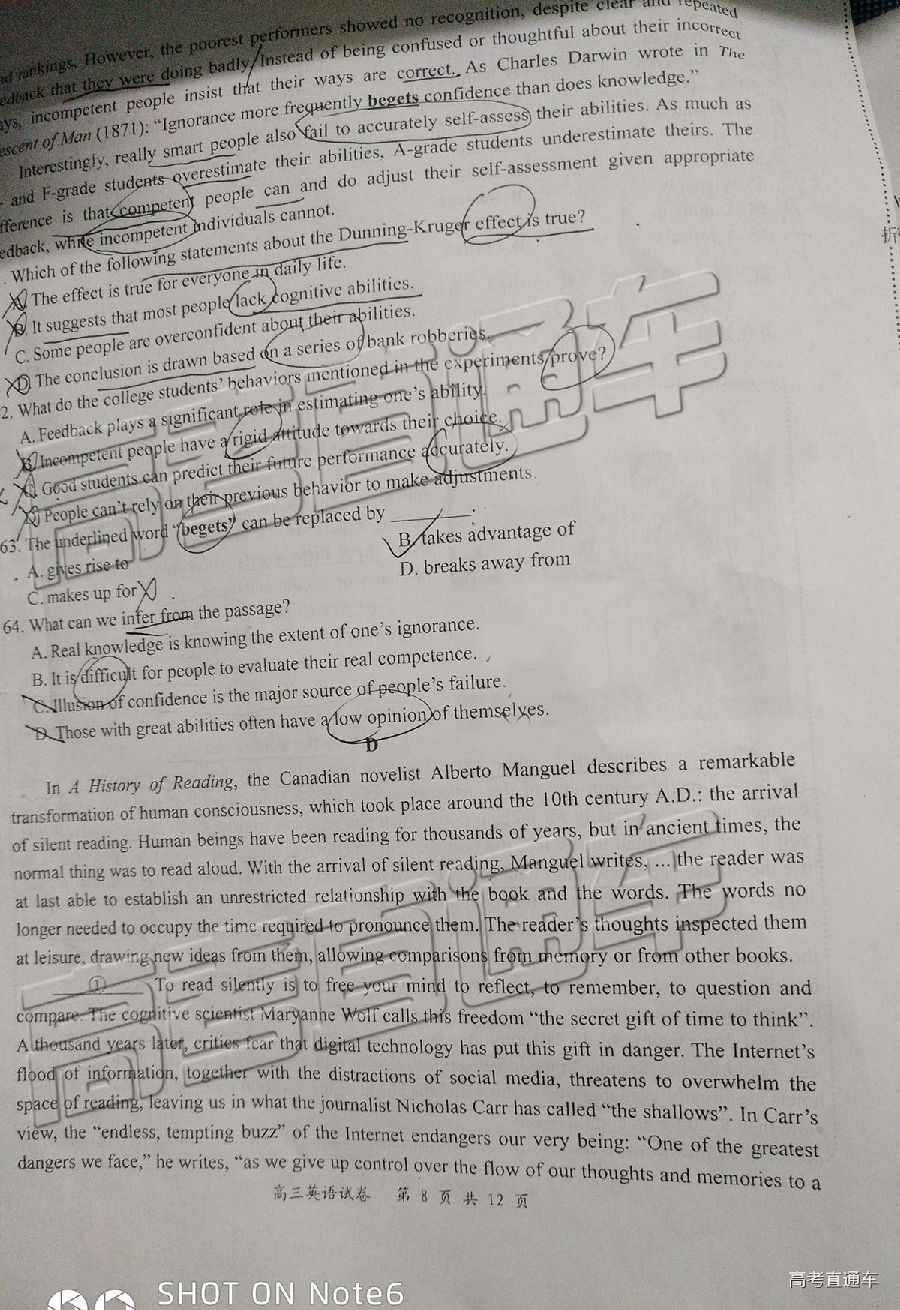 rankings. However, the poorest performers showed no recognition, despite clear and repeated
that they were doing badly. Instead of being confused or thoughtful about their incorrect
ways, incompetent people insist that their ways are correct. As Charles Darwin wrote in The
Descent of Man (1871): “Ignorance more frequently begets confidence than does knowledge.”
Interestingly, really smart people also fail to accurately self-assess their abilities. As much as
and F-grade students overestimate their abilities, A-grade students underestimate theirs. The
difference is that competent people can and do adjust their self-assessment given appropriate
feedback, while incompetent individuals cannot.
Which of the following statements about the Dunning-Kruger effect is true?
A. The effect is true for everyone in daily life.
B. It suggests that most people lack cognitive abilities.
C. Some people are overconfident about their abilities.
D. The conclusion is drawn based on a series of bank robberies.
2. What do the college students’ behaviors mentioned in the experiments prove?
A. Feedback plays a significant role in estimating one’s ability.
B. Incompetent people have a rigid attitude towards their choice.
C. Good students can predict their future performance accurately.
D. People can’t rely on their previous behavior to make adjustments.
63. The underlined word “begets” can be replaced by ______.
A. gives rise to
B. takes advantage of
C. makes up for
D. breaks away from
64. What can we infer from the passage?
A. Real knowledge is knowing the extent of one’s ignorance.
B. It is difficult for people to evaluate their real competence.
C. Illusion of confidence is the major source of people’s failure.
D. Those with great abilities often have a low opinion of themselves.
D
In A History of Reading, the Canadian novelist Alberto Manguel describes a remarkable
transformation of human consciousness, which took place around the 10th century A.D.: the arrival
of silent reading. Human beings have been reading for thousands of years, but in ancient times, the
normal thing was to read aloud. With the arrival of silent reading, Manguel writes, … the reader was
at last able to establish an unrestricted relationship with the book and the words. The words no
longer needed to occupy the time required to pronounce them. The reader’s thoughts inspected them
at leisure, drawing new ideas from them, allowing comparisons from memory or from other books.
______①______ To read silently is to free your mind to reflect, to remember, to question and
compare. The cognitive scientist Maryanne Wolf calls this freedom “the secret gift of time to think”.
A thousand years later, critics fear that digital technology has put this gift in danger. The Internet’s
flood of information, together with the distractions of social media, threatens to overwhelm the
space of reading, leaving us in what the journalist Nicholas Carr has called “the shallows”. In Carr’s
view, the “endless, tempting buzz” of the Internet endangers our very being: “One of the greatest
dangers we face,” he writes, “as we give up control over the flow of our thoughts and memories to a
高三英语试卷 第 8 页 共 12 页
折
高考直通车
高考直通车
SHOT ON Note6
高考直通车